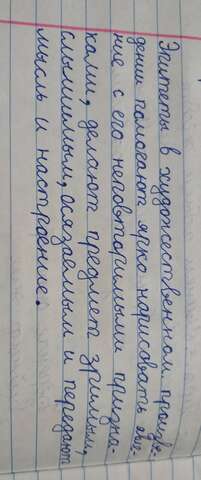 Эпитеты в художественном произве-
дении помогают ярко нарисовать явле-
ние с его неповторимыми призна-
ками, делают предмет зримым,
слышимым, осязаемым и передают
мысль и настроение.